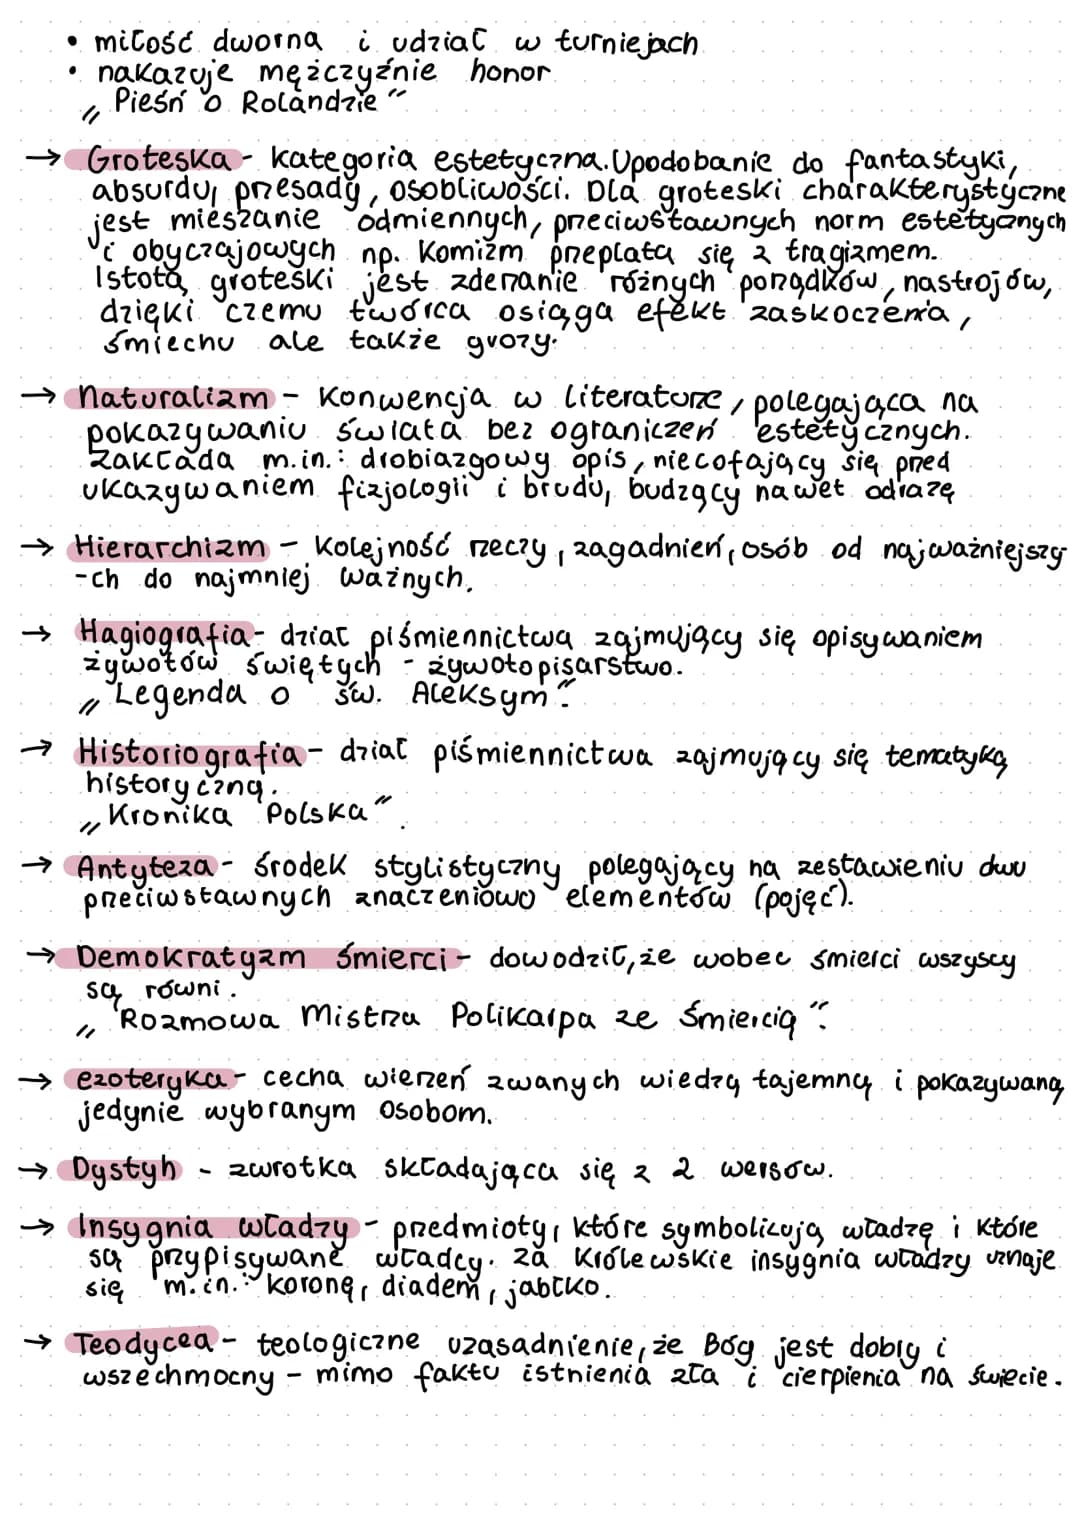 • miłość dworna i udział w turniejach
• nakazuje mężczyźnie honor
„Pieśń o Rolandzie"
→ Groteska - kategoria estetyczna. Upodobanie do fantastyki,
absurdu, przesady, osobliwości. Dla groteski charakterystyczne
jest mieszanie odmiennych, przeciwstawnych norm estetycznych
i obyczajowych np. Komizm przeplata się z tragizmem.
Istotą groteski jest zderzanie różnych porządków, nastrojów,
dzięki czemu twórca osiąga efekt zaskoczenia,
śmiechu ale także grozy.
→ Naturalizm - Konwencja w literaturze, polegająca na
pokazywaniu świata bez ograniczeń estetycznych.
Zakłada m.in.: drobiazgowy opis, niecofający się przed
ukazywaniem fizjologii i brudu, budzący nawet odrazę
→ Hierarchizm - Kolejność rzeczy, zagadnień, osób od najważniejszy
-ch do najmniej ważnych.
→ Hagiografia - dział piśmiennictwa zajmujący się opisywaniem
żywotów świętych - żywotopisarstwo.
„Legenda o św. Aleksym".
→ Historiografia - dział piśmiennictwa zajmujący się tematyką
historyczną.
„Kronika Polska".
→ Antyteza - środek stylistyczny polegający na zestawieniu dwu
przeciwstawnych znaczeniowo elementów (pojęć).
→ Demokratyzm śmierci - dowodził, że wobec śmierci wszyscy
są równi.
„Rozmowa Mistrza Polikarpa ze Śmiercią".
→ ezoteryka - cecha wierzeń zwanych wiedzą tajemną i pokazywaną
jedynie wybranym osobom.
→ Dystyh - zwrotka składająca się z 2 wersów.
→ Insygnia władzy - przedmioty, które symbolizują władzę i które
są przypisywane władcy. Za Królewskie insygnia władzy uznaje
się m.in.: koronę, diadem, jabłko.
→ Teodycea - teologiczne uzasadnienie, że Bóg jest dobry i
wszechmocny - mimo faktu istnienia zła i cierpienia na świecie.